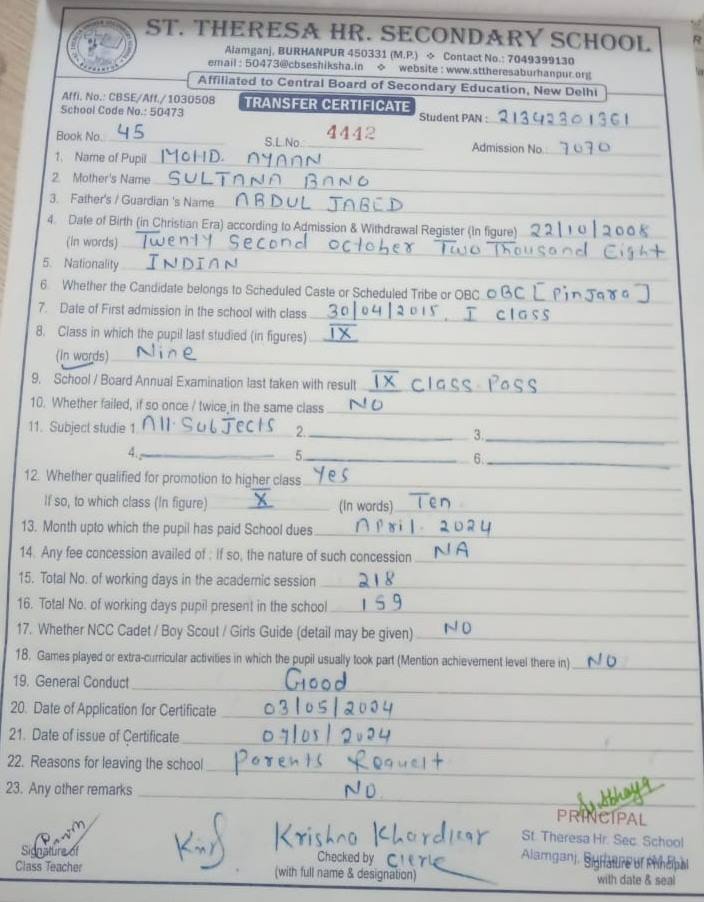 ST. THERESA HR. SECONDARY SCHOOL
Alamganj, BURHANPUR 450331 (M.P.) ❖ Contact No.: 7049399130
email : 50473@cbseshiksha.in ❖ website : www.sttheresaburhanpur.org
Affiliated to Central Board of Secondary Education, New Delhi
Affi. No.: CBSE/Aft./1030508
School Code No.: 50473
TRANSFER CERTIFICATE
Student PAN : 21342301361
Book No. 45 S.L.No. 4442 Admission No. 7070
1. Name of Pupil MOHD. AYAAN
2. Mother's Name SULTANA BANO
3. Father's / Guardian 's Name ABDUL JABED
4. Date of Birth (in Christian Era) according to Admission & Withdrawal Register (In figure) 22/10/2008
(In words) Twenty Second October Two Thousand Eight
5. Nationality INDIAN
6. Whether the Candidate belongs to Scheduled Caste or Scheduled Tribe or OBC OBC [Pinjara]
7. Date of First admission in the school with class 30/04/2015. I class
8. Class in which the pupil last studied (in figures) IX
(In words) Nine
9. School / Board Annual Examination last taken with result IX Class Pass
10. Whether failed, if so once / twice in the same class NO
11. Subject studie 1. All Subjects 2. 3.
4. 5. 6.
12. Whether qualified for promotion to higher class Yes
If so, to which class (In figure) X (In words) Ten
13. Month upto which the pupil has paid School dues April. 2024
14. Any fee concession availed of : If so, the nature of such concession NA
15. Total No. of working days in the academic session 218
16. Total No. of working days pupil present in the school 159
17. Whether NCC Cadet / Boy Scout / Girls Guide (detail may be given) NO
18. Games played or extra-curricular activities in which the pupil usually took part (Mention achievement level there in) NO
19. General Conduct Good
20. Date of Application for Certificate 03/05/2024
21. Date of issue of Certificate 07/05/2024
22. Reasons for leaving the school Parents Request
23. Any other remarks NO
PRINCIPAL
St. Theresa Hr. Sec. School
Krishna Khardikar
Signature of
Class Teacher
Checked by Clerk
(with full name & designation)
Alamganj, Burhanpur (M.P.)
Signature of Principal
with date & seal